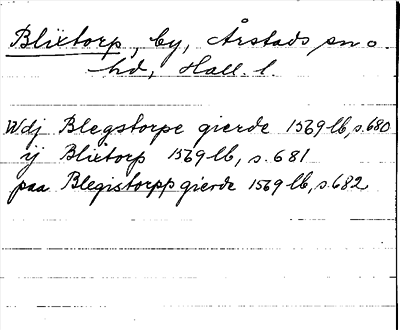 Blixtorp, by, Årstads sn o
hd, Hall. l.
Wdj Blegstorpe gierde 1569 lb, s. 680
ij Blixtorp 1569 lb, s. 681
paa Blegistorpp gierde 1569 lb, s. 682